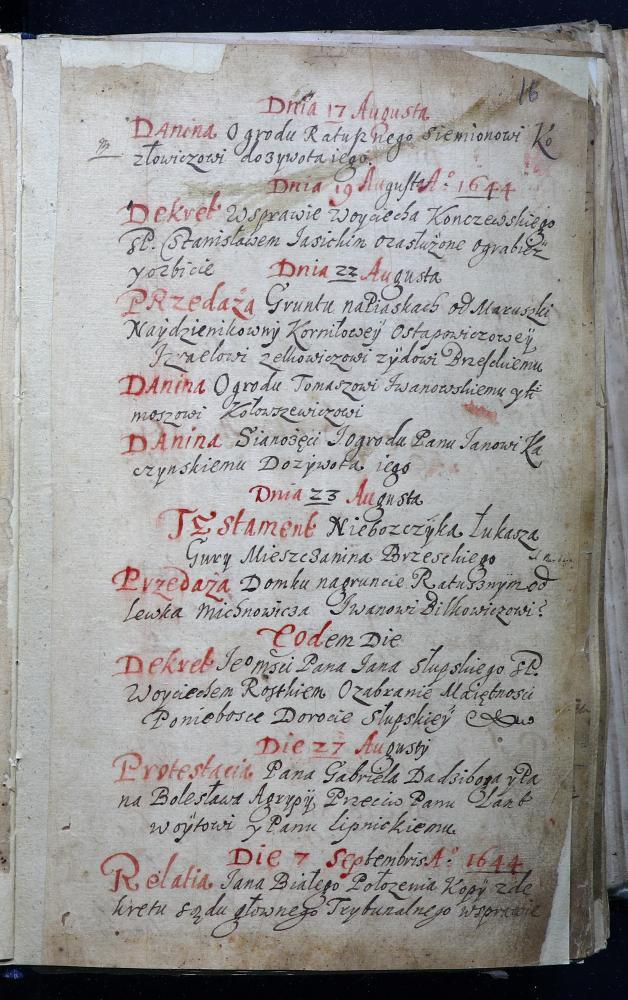 16
Dnia 17 Augusta
Danina Ogrodu Ratusznego Siemionowi Ko
złowiczowi dozywota iego.
Dnia 19 Augusta A° 1644
Dekret Wsprawie Woyciecha Konczewskiego
SP. Stanisławem Jasickim ozasłużone ograbież
yozbicie Dnia 22 Augusta
PRzedaża Gruntu napiaskach od Maruszki
Naydzienikowny Korniłowey Ostapowiczowey
Izraelowi zelkowiczowi zydowi Brzeskiemu
Danina Ogrodu Tomaszowi Iwanowskiemu yti
moszowi Kołowszewiczowi
Danina Sianożęci Iogrodu Panu Janowi Ka
czynskiemu Dozywota iego
Dnia 23 Augusta
TEstament Nieboszczyka Łukasza
Gury Mieszczanina Brzeskiego
Przedaża Domku nagruncie Ratusznym od
lewka Michnowicza Iwanowi Bilkowiczowi
Eodem Die
Dekret Jeomści Pana Jana Słupskiego SP.
Woyciechem Rostkiem Ozabranie Maiętnosci
Poniebosce Dorocie Słupskiey
Die 27 Augusty
Protestacia Pana Gabriela Dadziboga yPa
na Bolesława Agrypy, Przeciw Panu Lant
woytowi yPanu lipnickiemu
Die 7 Septembris A° 1644
Relatia Jana Białego Położenia Kopij zde
kretu sądu głownego Trybunalnego wsprawie